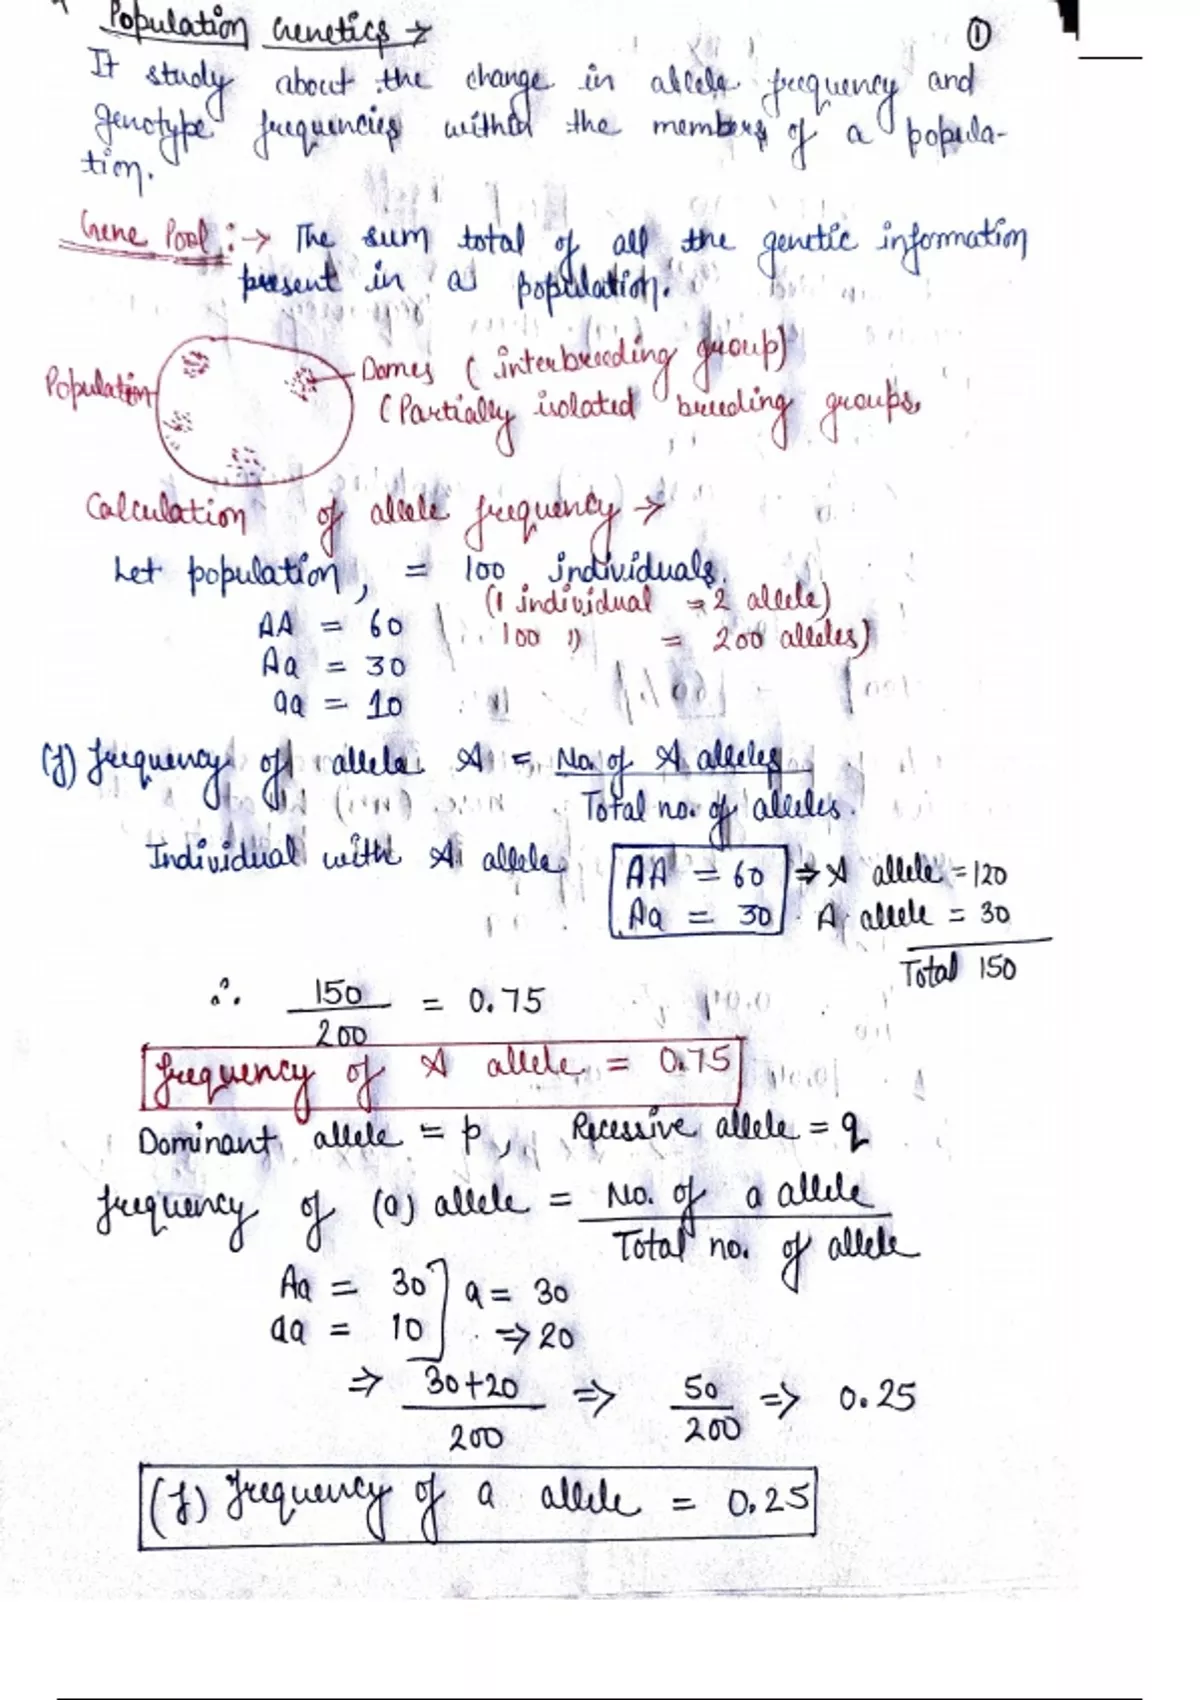 Population Genetics →
①
It study about the change in allele frequency and
genotype frequencies within the members of a popula-
tion.
Gene Pool :→ The sum total of all the genetic information
present in a population.
Population
Domes (interbreeding group)
(Partially isolated breeding groups,
Calculation of allele frequency →
Let population, = 100 individuals.
(1 individual = 2 allele)
AA = 60
100 " = 200 alleles)
Aa = 30
aa = 10
(f) frequency of allele A = No. of A alleles
Total no. of alleles.
Individual with A allele
AA = 60 ⇒ A allele = 120
Aa = 30 A allele = 30
Total 150
∴ 150 = 0.75
200
frequency of A allele = 0.75
Dominant allele = p, Recessive allele = q
frequency of (a) allele = No. of a allele
Total no. of allele
Aa = 30 ] a = 30
aa = 10 ⇒ 20
⇒ 30+20 ⇒ 50 ⇒ 0.25
200 200
(f) frequency of a allele = 0.25